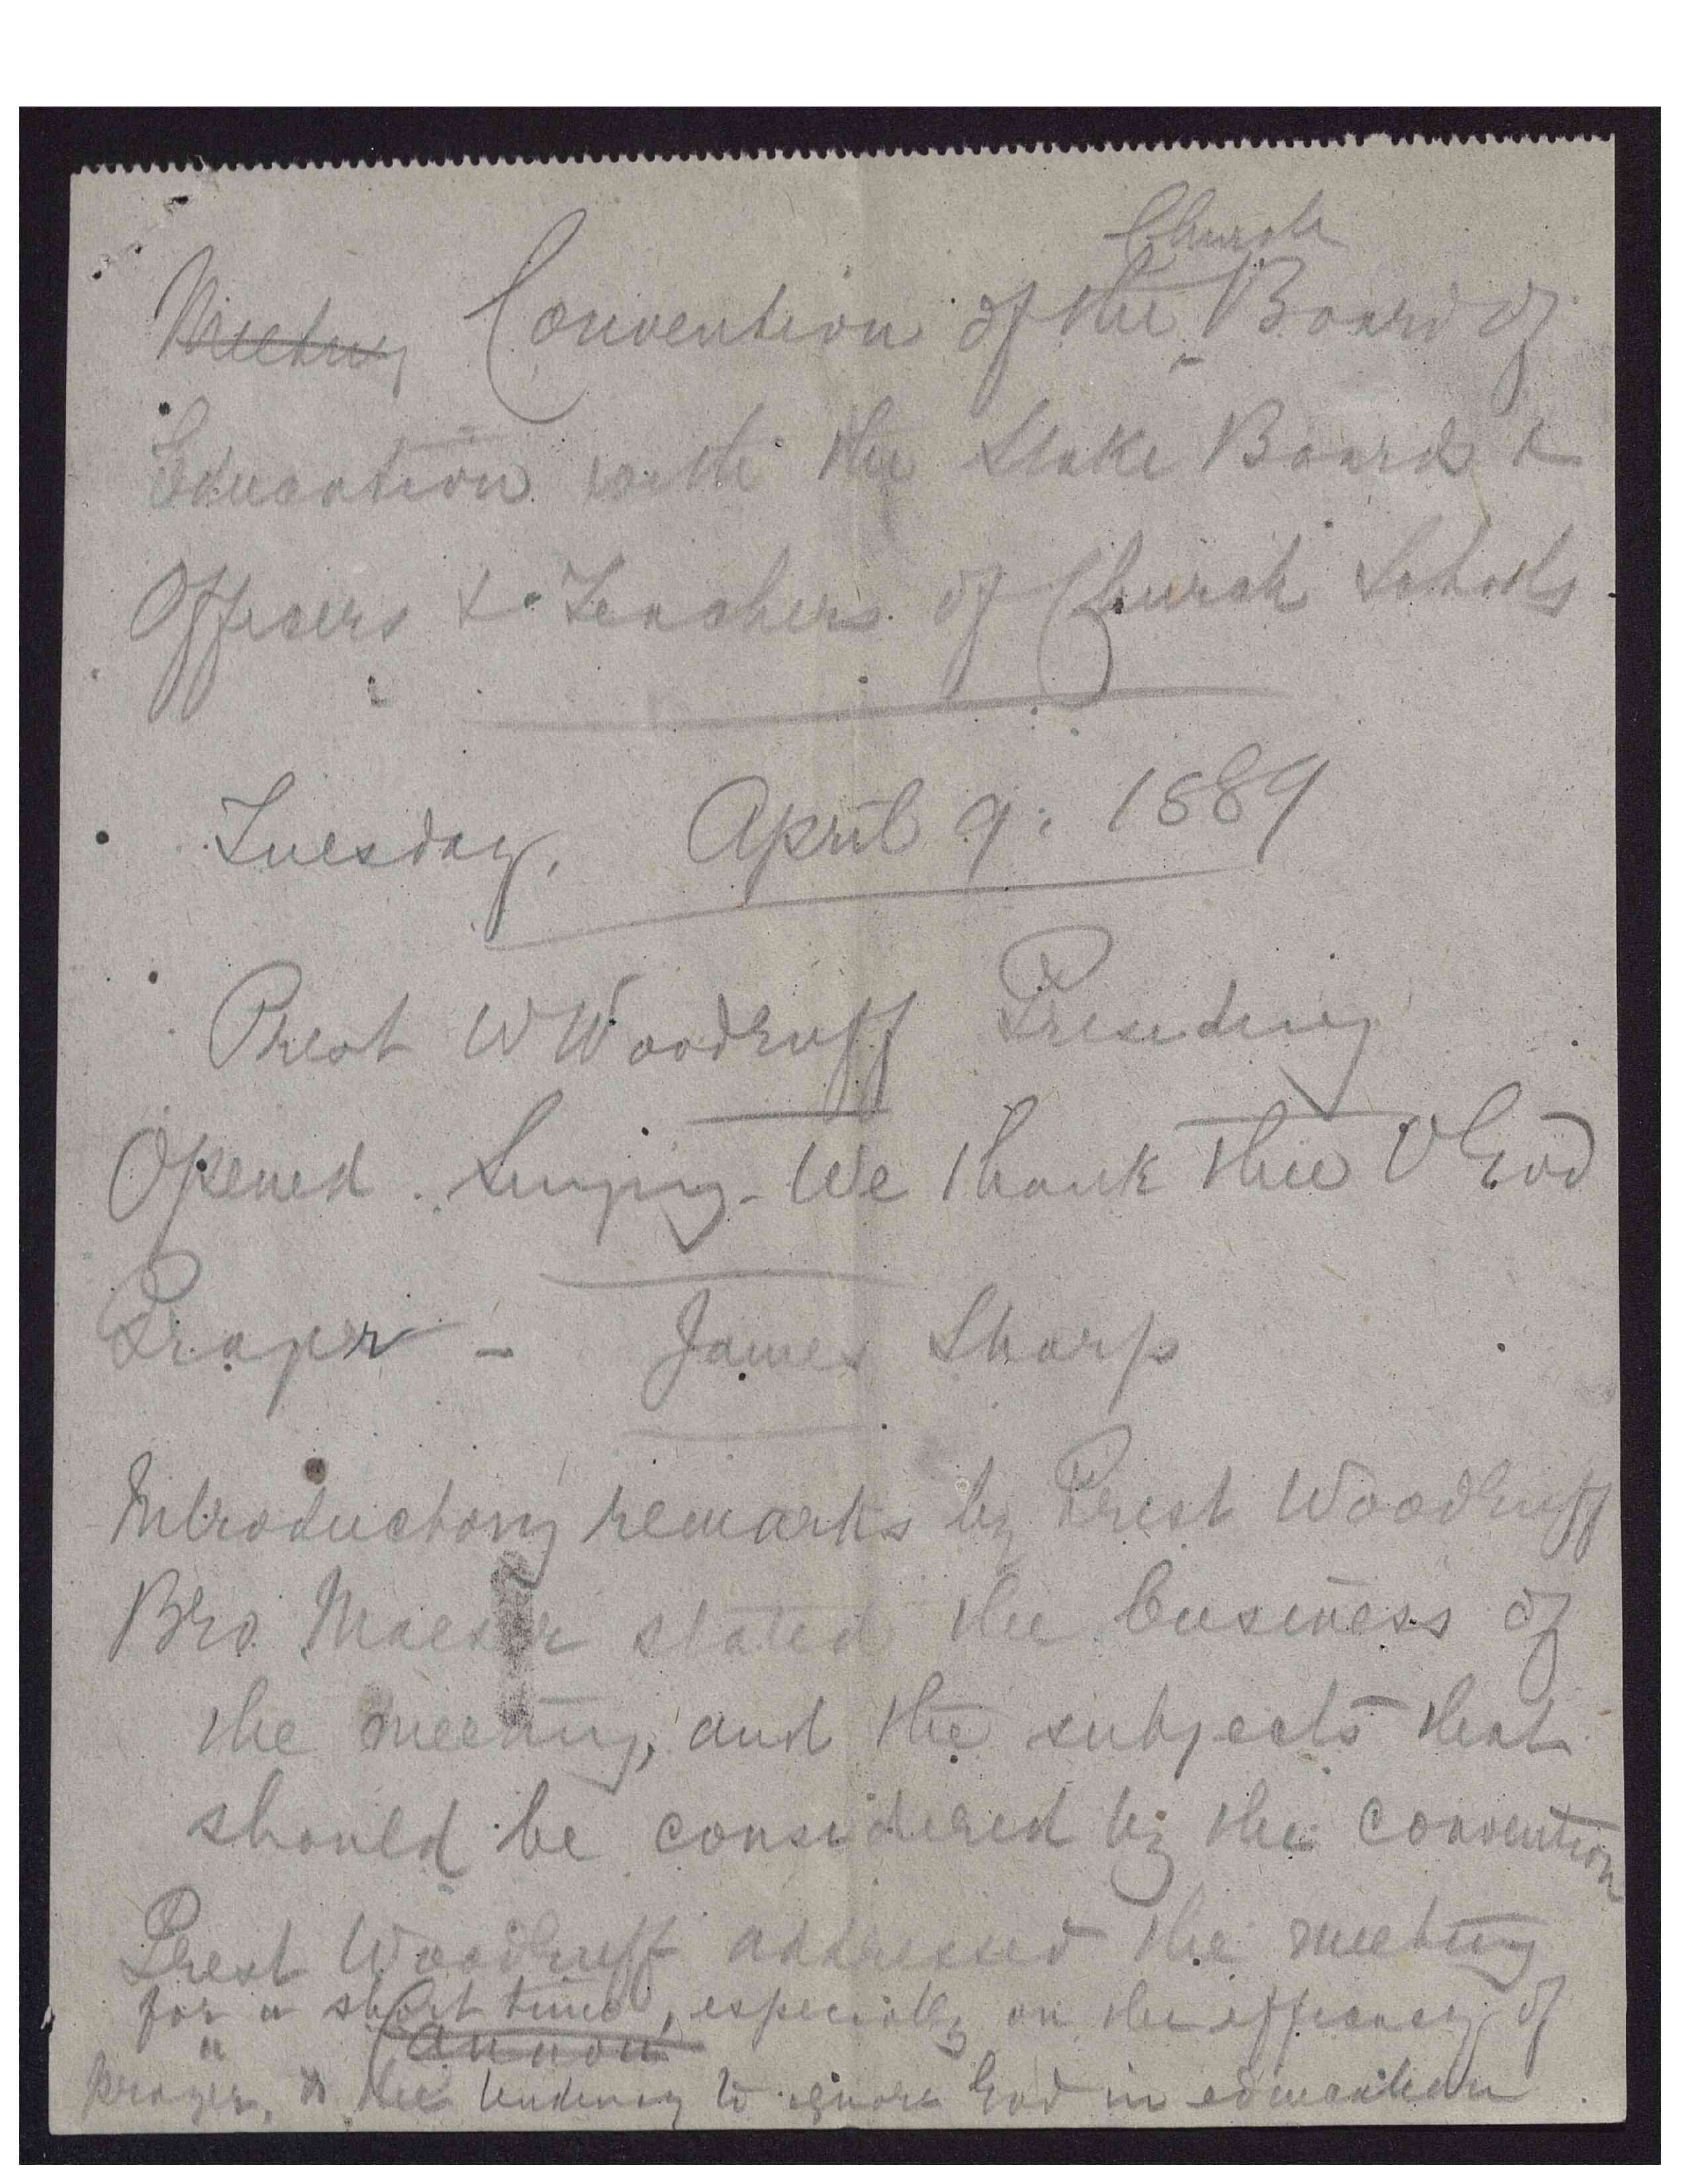 Church
Meeting Convention of the Board of
Education with the Stake Boards &
Officers & Teachers of Church Schools
Tuesday, April 9. 1889
Prest W Woodruff Presiding
Opened. Singing - We thank thee O God
Prayer - James Sharp
Introductory remarks by Prest Woodruff
Bro Maeser stated the business of
the meeting, and the subjects that
should be considered by the convention
Prest Woodruff addressed the meeting
for a short time, especially on the efficacy of
" Cannon
prayer, & the tendency to ignore God in education